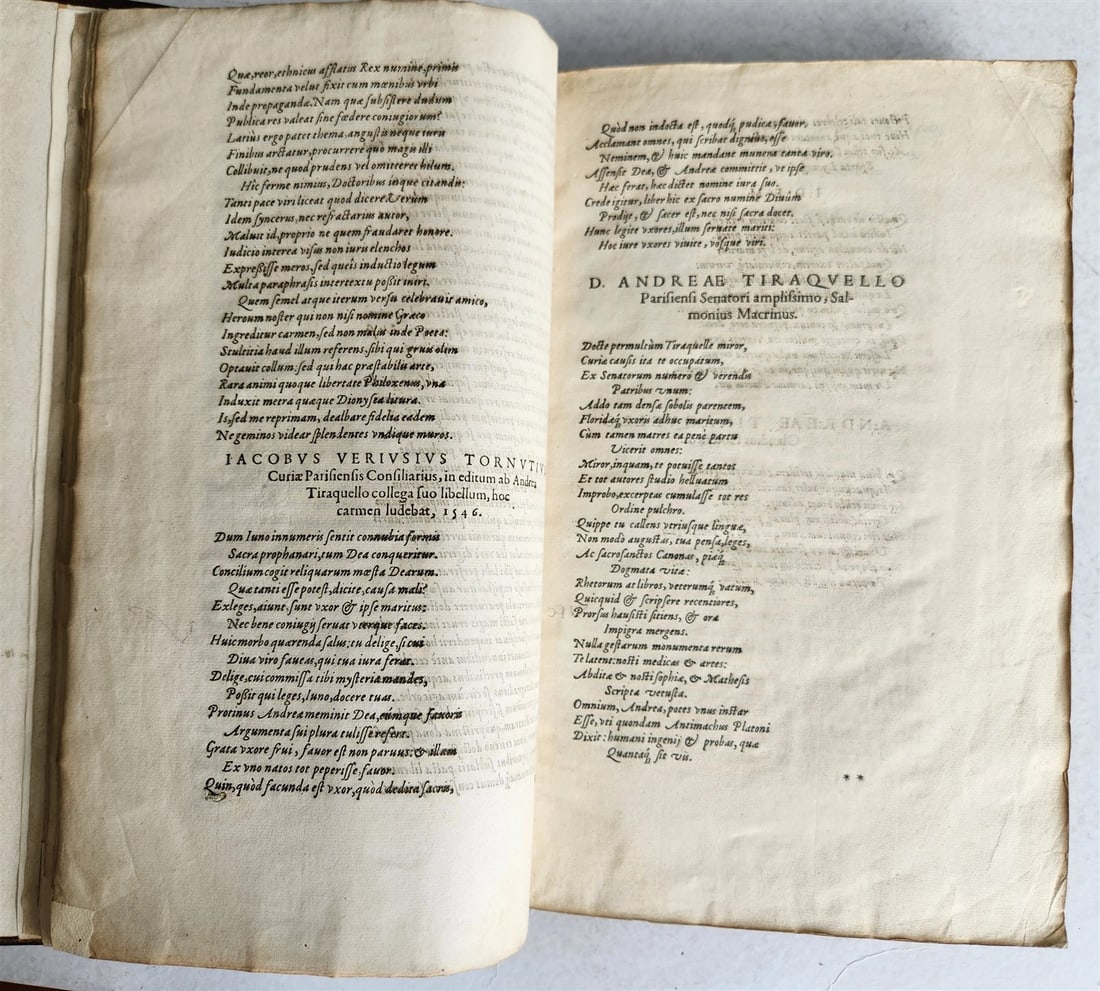 Quæ, reor, ethnicus afflatus Rex numine, primis
Fundamenta velut fixit cum mœnibus vrbi
Inde propaganda. Nam quæ subsistere dudum
Publica res valeat sine fœdere coniugiorum?
Latiùs ergo patet thema, angustis neque iuris
Finibus arctatur, procurrere quò magis illi
Collibuit, ne quod prudens vel omitteret hilum.
Hîc ferme nimius, Doctoribus inque citandis:
Tanti pace viri liceat quod dicere Verùm
Idem syncerus, nec refractarius autor,
Maluit id, proprio ne quem fraudaret honore.
Iudicio interea visus non iuris elenchos
Expressisse meros, sed queîs inductio legum
Multa paraphrasis intertextu possit iniri.
Quem semel atque iterum versu celebrauit amico,
Heroum noster qui non nisi nomine Græco
Ingreditur carmen, sed non malus inde Poeta:
Stultitia haud illum referens, sibi qui gruis olim
Optauit collum: sed qui hac præstabilis arte,
Rara animi quoque libertate Philoxenus, vna
Induxit metra quæque Dionysea litura.
Is, sed me reprimam, dealbare fidelia eadem
Ne geminos videar splendentes vndique muros.
IACOBVS VERIVSIVS TORNVTIVS
Curiæ Parisiensis Consiliarius, in editum ab Andrea
Tiraquello collega suo libellum, hoc
carmen ludebat, 1546.
Dum Iuno innumeris sentit connubia formis
Sacra prophanari, tum Dea conqueritur.
Concilium cogit reliquarum mœsta Dearum.
Quæ tanti esse potest, dicite, causa mali?
Exleges, aiunt, sunt vxor & ipse maritus:
Nec bene coniugij seruat vterque faces.
Huic morbo quærenda salus: tu delige, si cui
Diua viro faueas, qui tua iura ferat.
Delige, cui commissa tibi mysteria mandes,
Possit qui leges, Iuno, docere tuas.
Protinus Andreæ meminit Dea, eúmque fauoris
Argumenta sui plura tulisse refert.
Grata vxore frui, fauor est non paruus: & illam
Ex vno natos tot peperisse, fauor.
Quin, quòd facunda est vxor, quòd dedita sacris,
Quòd non indocta est, quodq́ pudica, fauor.
Acclamant omnes, qui scribat dignius, esse
Neminem, & huic mandant munera tanta viro.
Assensit Dea, & Andreæ committit, vt ipse
Hæc ferat, hæc dictet nomine iura suo.
Crede igitur, liber hic ex sacro numine Diuûm
Prodijt, & sacer est, nec nisi sacra docet.
Hunc legite vxores, illum seruate mariti:
Hoc iure vxores viuite, vósque viri.
D. ANDREAE TIRAQVELLO
Parisiensi Senatori amplissimo, Sal-
monius Macrinus.
Docte permultùm Tiraquelle miror,
Curiæ causis ita te occupatum,
Ex Senatorum numero & verendis
Patribus vnum:
Addo tam densæ sobolis parentem,
Floridæq́ vxoris adhuc maritum,
Cùm tamen matres ea pene partu
Vicerit omnes:
Miror, inquam, te potuisse tantos
Et tot autores studio helluatum
Improbo, excerptas cumulasse tot res
Ordine pulchro.
Quippe tu callens vtriusque linguæ,
Non modò augustas, tua pensa, leges,
Ac sacrosanctos Canonas, piæq́
Dogmata vitæ:
Rhetorum at libros, veterumq́ vatum,
Quicquid & scripsere recentiores,
Prorsus hausisti sitiens, & ora
Impigra mergens.
Nulla gestarum monumenta rerum
Te latent: nosti medicas & artes:
Abditæ & nosti sophiæ, & Mathesis
Scripta vetusta.
Omnium, Andrea, potes vnus instar
Esse, vti quondam Antimachus Platoni
Dixit: humani ingenij & probas, quæ
Quantaq́ sit vis.
**